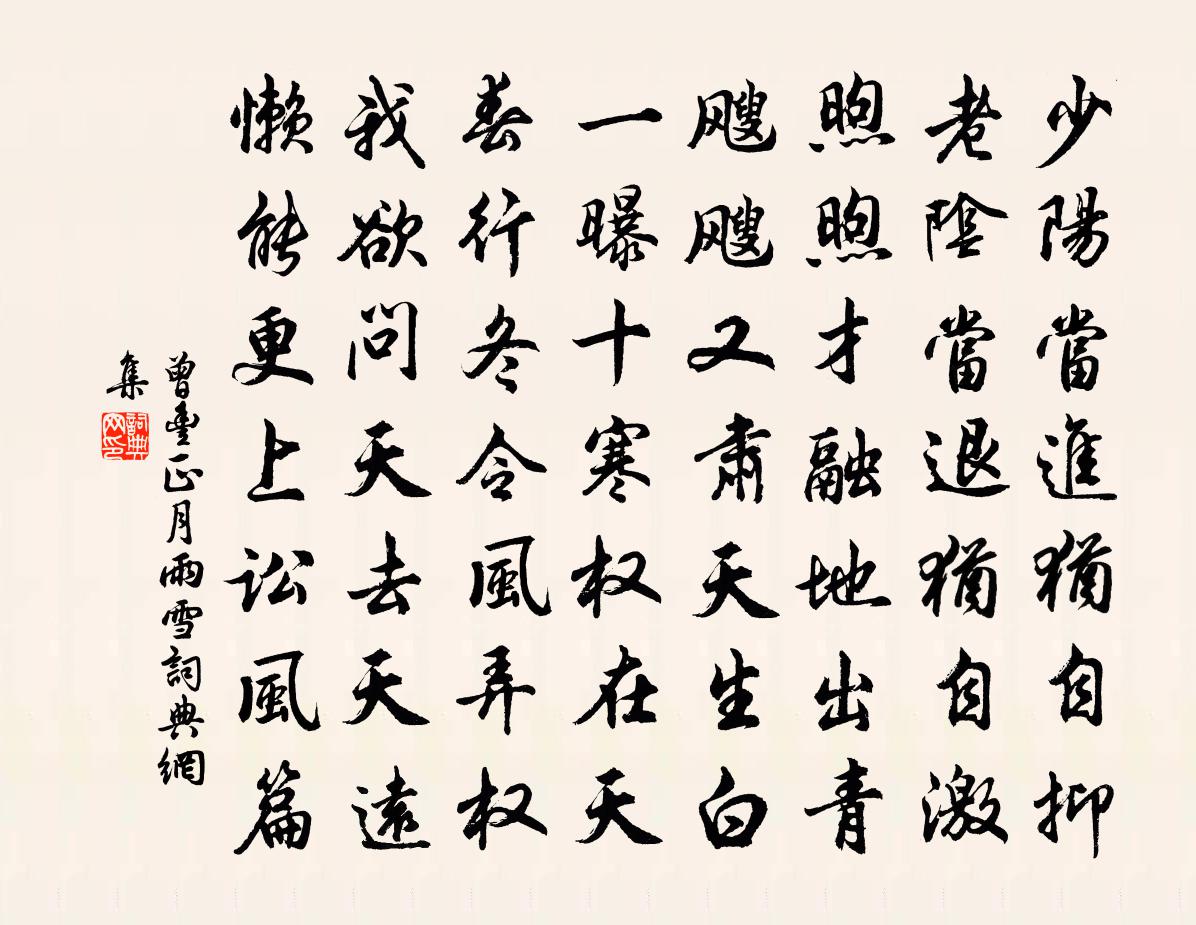 少陽當進猶自抑
老陰當退猶自激
煦煦才融地出青
飕飕又肅天生白
一曝十寒权在天
春行冬令風弄权
我欲问天去天遠
懒能更上讼風篇
曾豊正月雨雪詞典網
集
詞典
网印